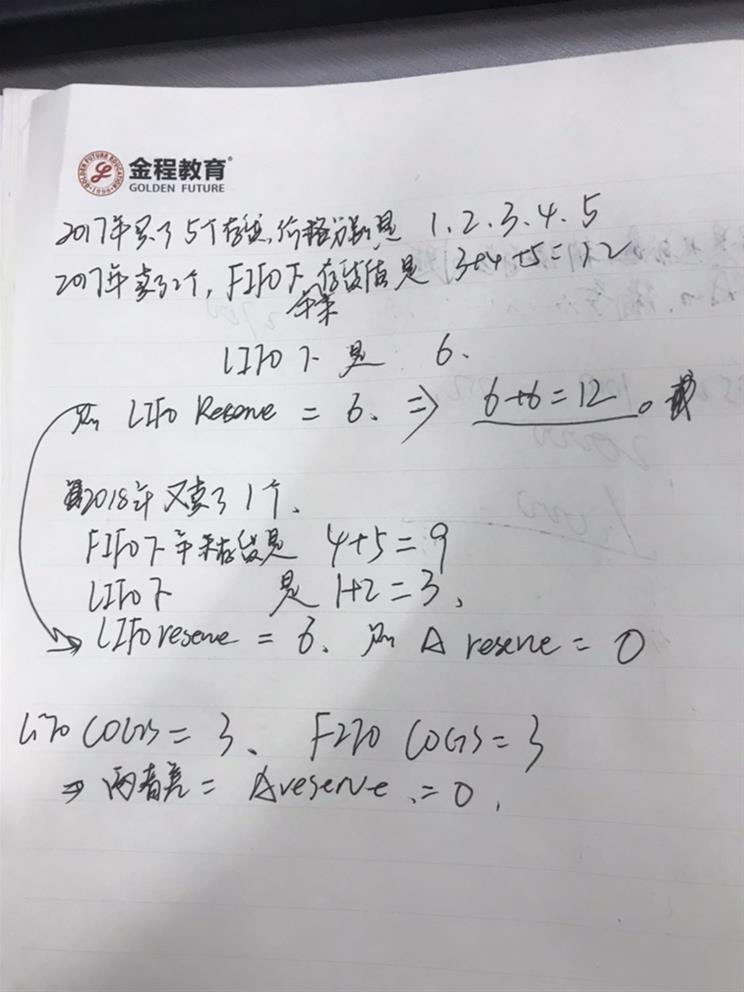 金程教育®
GOLDEN FUTURE
2017年买了5个存货,价格分别是 1.2.3.4.5
2017年卖了2个, FIFO下 存货值是 3+4+5=12
年末
LIFO下 是 6.
则 LIFO Reserve = 6. ⇒ 6+6=12。
2018年又卖了1个、
FIFO下年末存货是 4+5=9
LIFO下 是 1+2=3、
LIFO reserve = 6. 则 Δ reserve = 0
LIFO COGS = 3、 FIFO COGS = 3
⇒ 两者差 = Δreserve .=0.